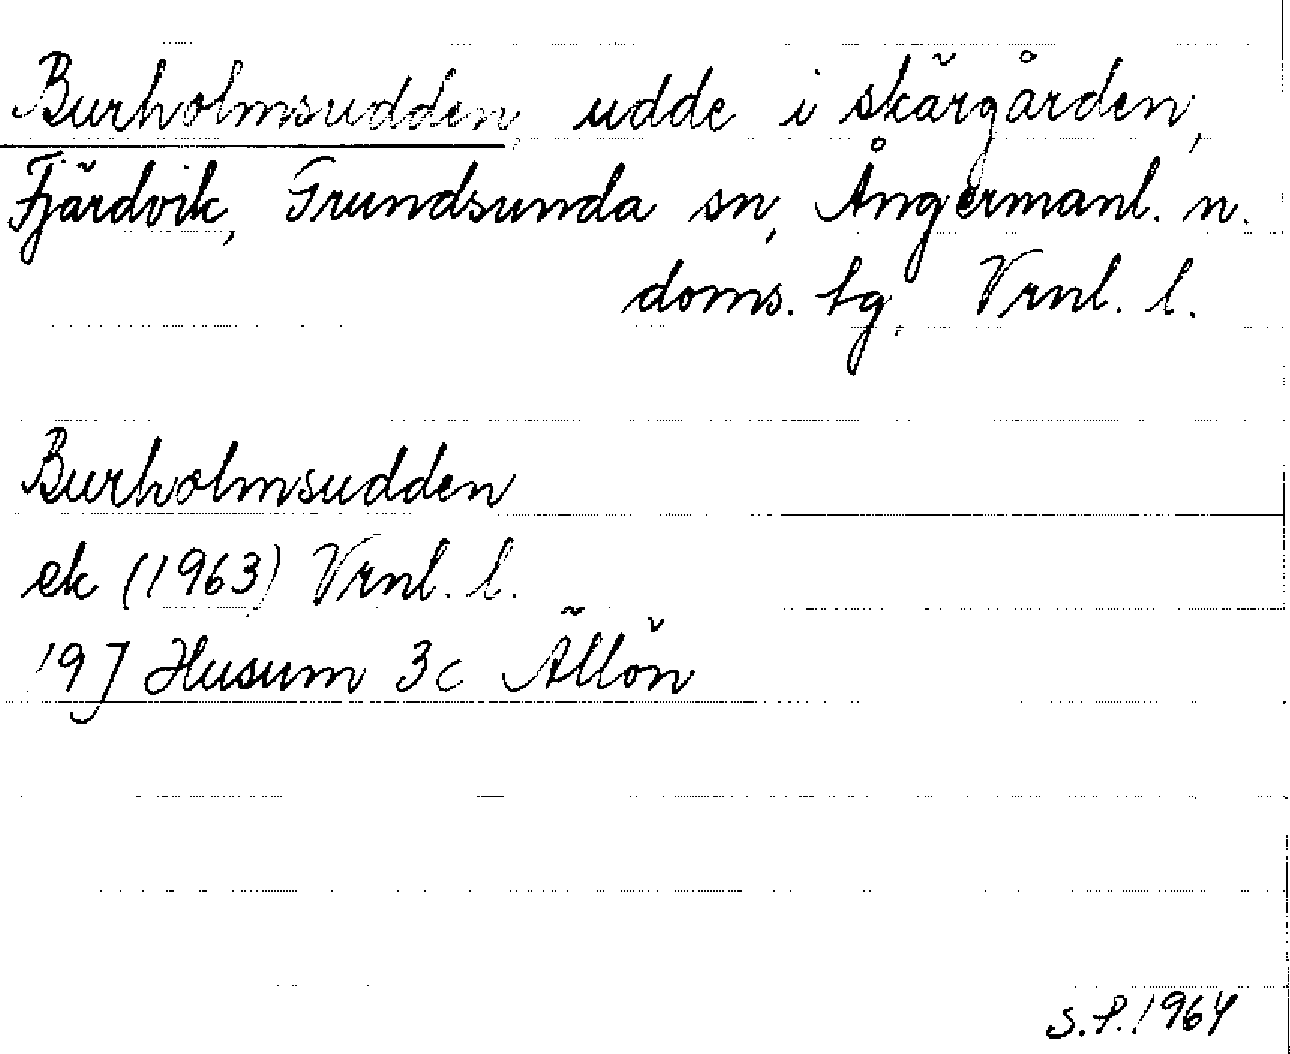 Burholmsudden, udde i skärgården,
Fjärdvik, Grundsunda sn, Ångermanl. n.
doms. tg, Vrnl. l.
Burholmsudden
ek (1963) Vrnl. l.
19J Husum 3c Ällön
S.P. 1964